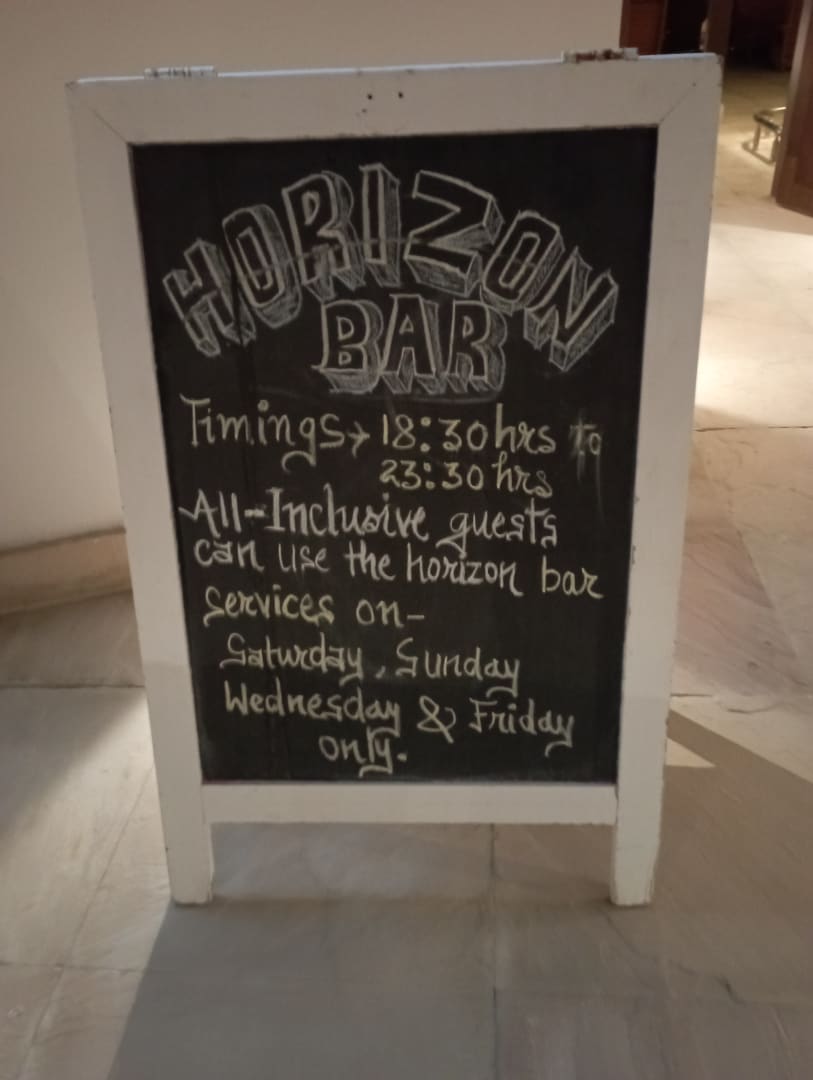 HORIZON
BAR
Timings→ 18:30hrs to
23:30 hrs
All-Inclusive guests
can use the horizon bar
services on-
Saturday, Sunday
Wednesday & Friday
only.